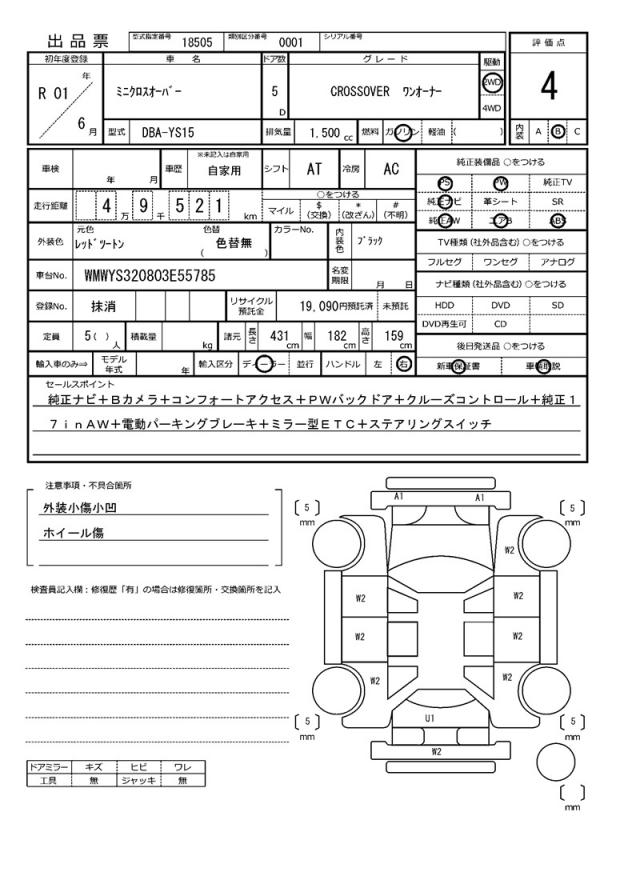 出品票
型式指定番号 18505 類別区分番号 0001 シリアル番号
評価点
4
内装 A B C
初年度登録 車名 ドア数 グレード 駆動
R 01 年 6 月
ミニクロスオーバー
5 D
CROSSOVER ワンオーナー
2WD
4WD
型式 DBA-YS15 排気量 1.500 cc 燃料 ガソリン 軽油 ( )
車検 年 月 車歴 ※未記入は自家用 自家用 シフト AT 冷房 AC
走行距離 4 万 9 千 5 2 1 km
○をつける
マイル $ (交換) * (改ざん) # (不明)
外装色 元色 レッドツートン 色替 色替無 ( ) カラーNo. 内装色 ブラック
車台No. WMWYS320803E55785 名変期限 月 日
登録No. 抹消 リサイクル預託金 19,090円預託済 未預託
定員 5( ) 人 積載量 kg 諸元 長さ 431 cm 幅 182 cm 高さ 159 cm
輸入車のみ⇒ モデル年式 年 輸入区分 ディーラー 並行 ハンドル 左 右
純正装備品 ○をつける
PS PW 純正TV
純正ナビ 革シート SR
純正AW エアB ABS
TV種類 (社外品含む) ○をつける
フルセグ ワンセグ アナログ
ナビ種類 (社外品含む) ○をつける
HDD DVD SD
DVD再生可 CD
後日発送品 ○をつける
新車保証書 車輌取説
セールスポイント
純正ナビ+Bカメラ+コンフォートアクセス+PWバックドア+クルーズコントロール+純正1
7inAW+電動パーキングブレーキ+ミラー型ETC+ステアリングスイッチ
注意事項・不具合箇所
外装小傷小凹
ホイール傷
検査員記入欄：修復歴「有」の場合は修復箇所・交換箇所を記入
ドアミラー キズ ヒビ ワレ
工具 無 ジャッキ 無
A1 A1
5 mm
5 mm
W2
W2 W2
W2 W2
W2 W2
U1
W2
5 mm
5 mm
mm